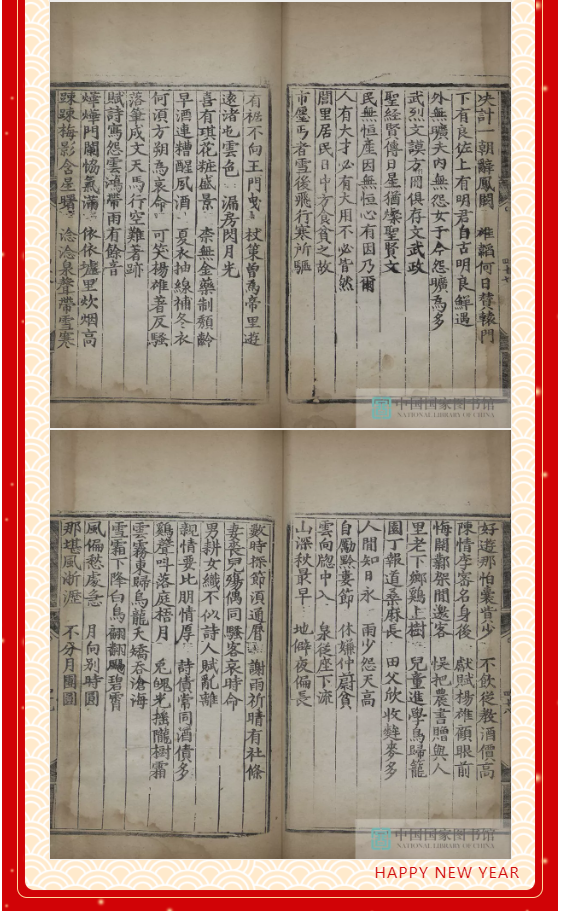 計一朝辭鳳闕 韜何日贊轅門
下有良佐上有明君自古明良鮮遇
外無曠夫內無怨女于今怨曠為多
武烈文謨方冊俱存文武政
聖經賢傳日星猶燦聖賢文
民無恒產因無恒心有因乃爾
人有大才必有大用不必皆然
閭里居民日中方食貧之故
市廛丐者雪後飛行寒所驅
有裾不向王門曳 杖策曾為帝里遊
遠渚也雲色 漏房閃月光
喜有琪花粧盛景 柰無金藥制頹齡
早酒連糟醒風酒 夏衣抽線補冬衣
何須方朔為哀命 可笑揚雄著反騷
落筆成文天馬行空難著跡
賦詩寓怨雲鴻帶雨有餘音
燁燁門闌恊氣滿 依依墟里炊烟高
踈踈梅影含星曙 淰淰泉聲帶雪寒
中国国家图书馆
NATIONAL LIBRARY OF CHINA
好遊那怕囊貲少 不飲從教酒價高
陳情李密名身後 獻賦揚雄顧眼前
悔開鄴架閒邊客 悞把農書贈與人
里老下鄉鷄上樹 兒童進學鳥歸籠
園丁報道桑麻長 田父欣收麰麥多
人間知日永 雨少怨天高
自勵黔婁節 休嫌仲蔚貧
雲向牕中入 泉從座下流
山深秋最早 地僻夜偏長
數時探節須通曆 謝雨祈晴有社條
妻喪兒殤偶同騷客哀時命
男耕女織不似詩人賦亂離
親情要比朋情厚 詩債常同酒債多
鷄聲呌落庭梧月 兎魄光搖隴樹霜
雲霧東歸烏龍夭矯吞滄海
雪霜下降白鳥翩翻颺碧霄
風偏愁處急 月向別時圓
那堪風淅瀝 不分月團圞
中国国家图书馆
NATIONAL LIBRARY OF CHINA
HAPPY NEW YEAR